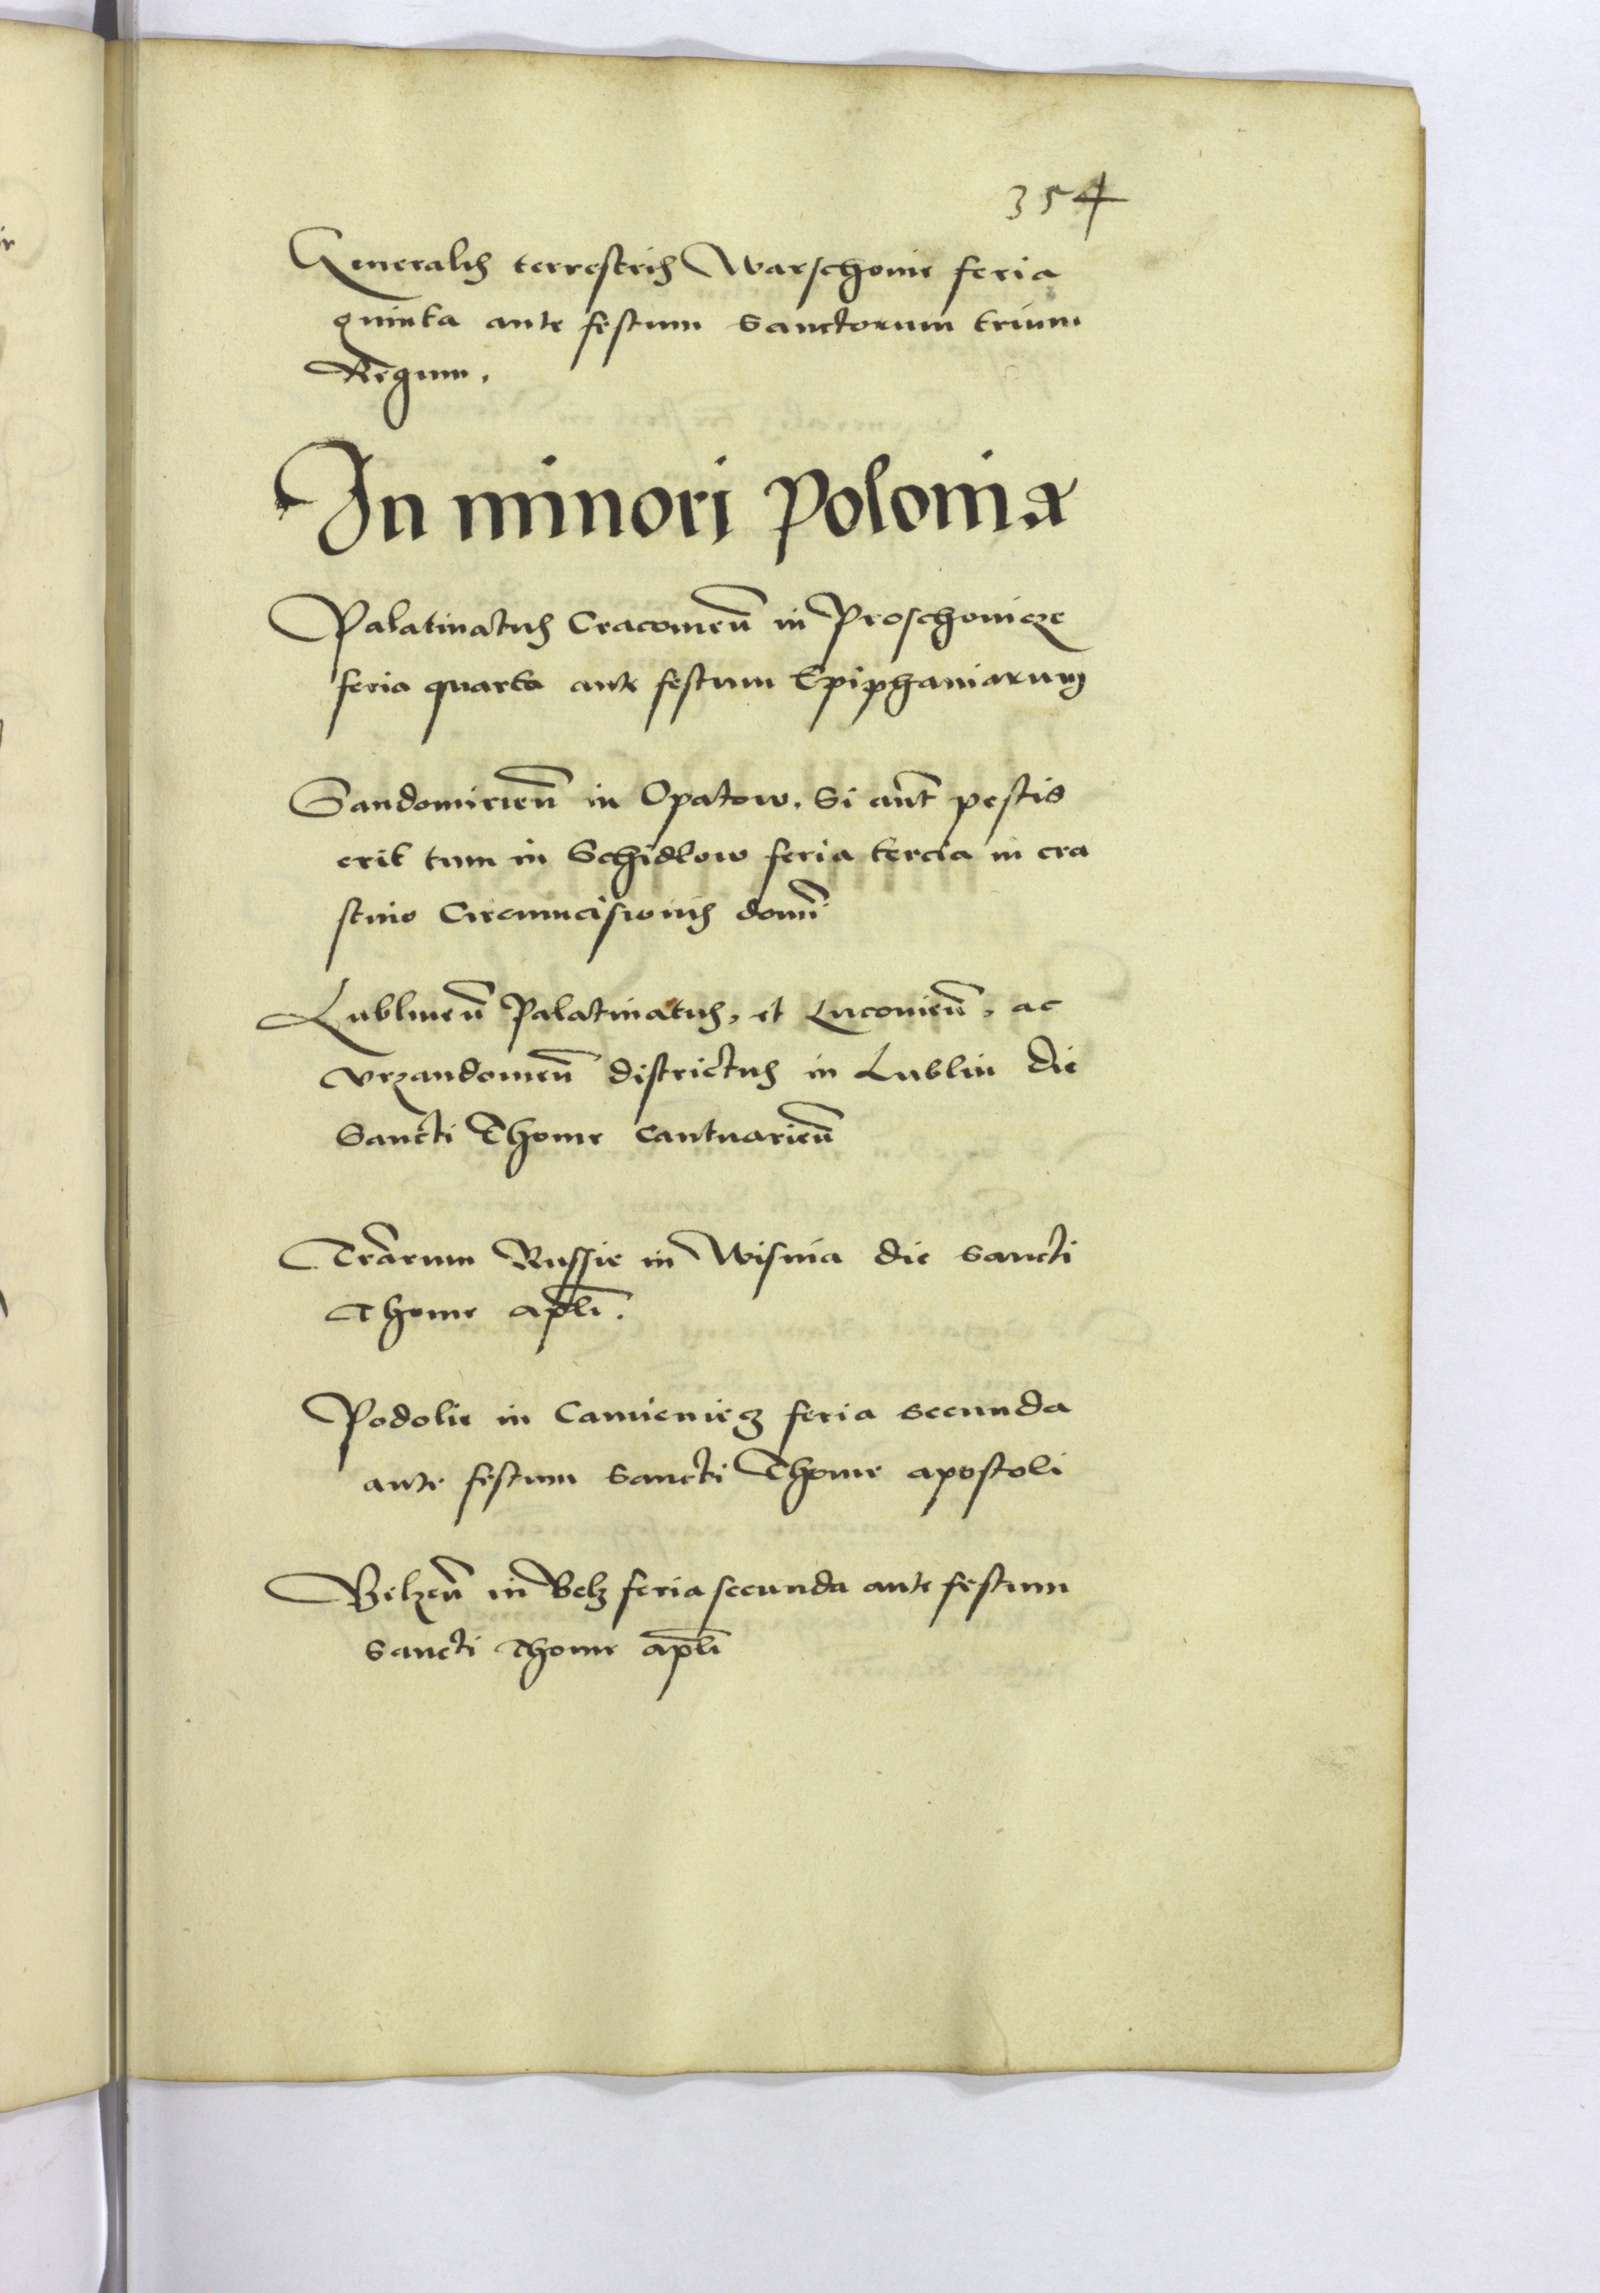 354
Generalis terrestris Warschovie feria
quinta ante festum Sanctorum trium
Regum.
In minori Polonia
Palatinatus Cracovien̄ in Proschovicze
feria quarta ante festum Epiphaniarum
Sandomirien̄ in Opatow. Si aūt pestis
erit tum in Schidlow feria tercia in cra
stino Circumcisionis domī
Lublinen̄ Palatinatus, et Lucovien̄, ac
Vrzandovien̄ districtus in Lublin die
Sancti Thome Cantuarien̄
Tr̄arum Russie in Wisnia die Sancti
Thome apl̄i.
Podolie in Camieniecz feria secunda
ante festum Sancti Thome apostoli
Belzen̄ in Belz feria secunda ante festum
Sancti Thome apl̄i